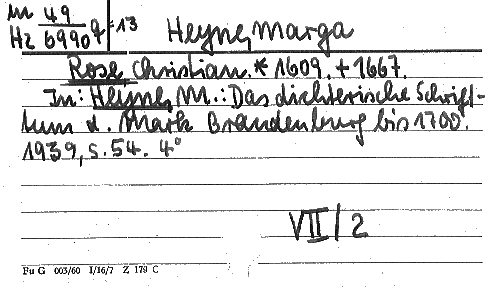 in 49
Hz 6990q : 13
Heyne, Marga
Rose, Christian. * 1609. + 1667.
In: Heyne, M.: Das dichterische Schrift-
tum d. Mark Brandenburg bis 1700.
1939, S. 54. 4°
VII/2
Fu G 003/60 I/16/7 Z 179 C